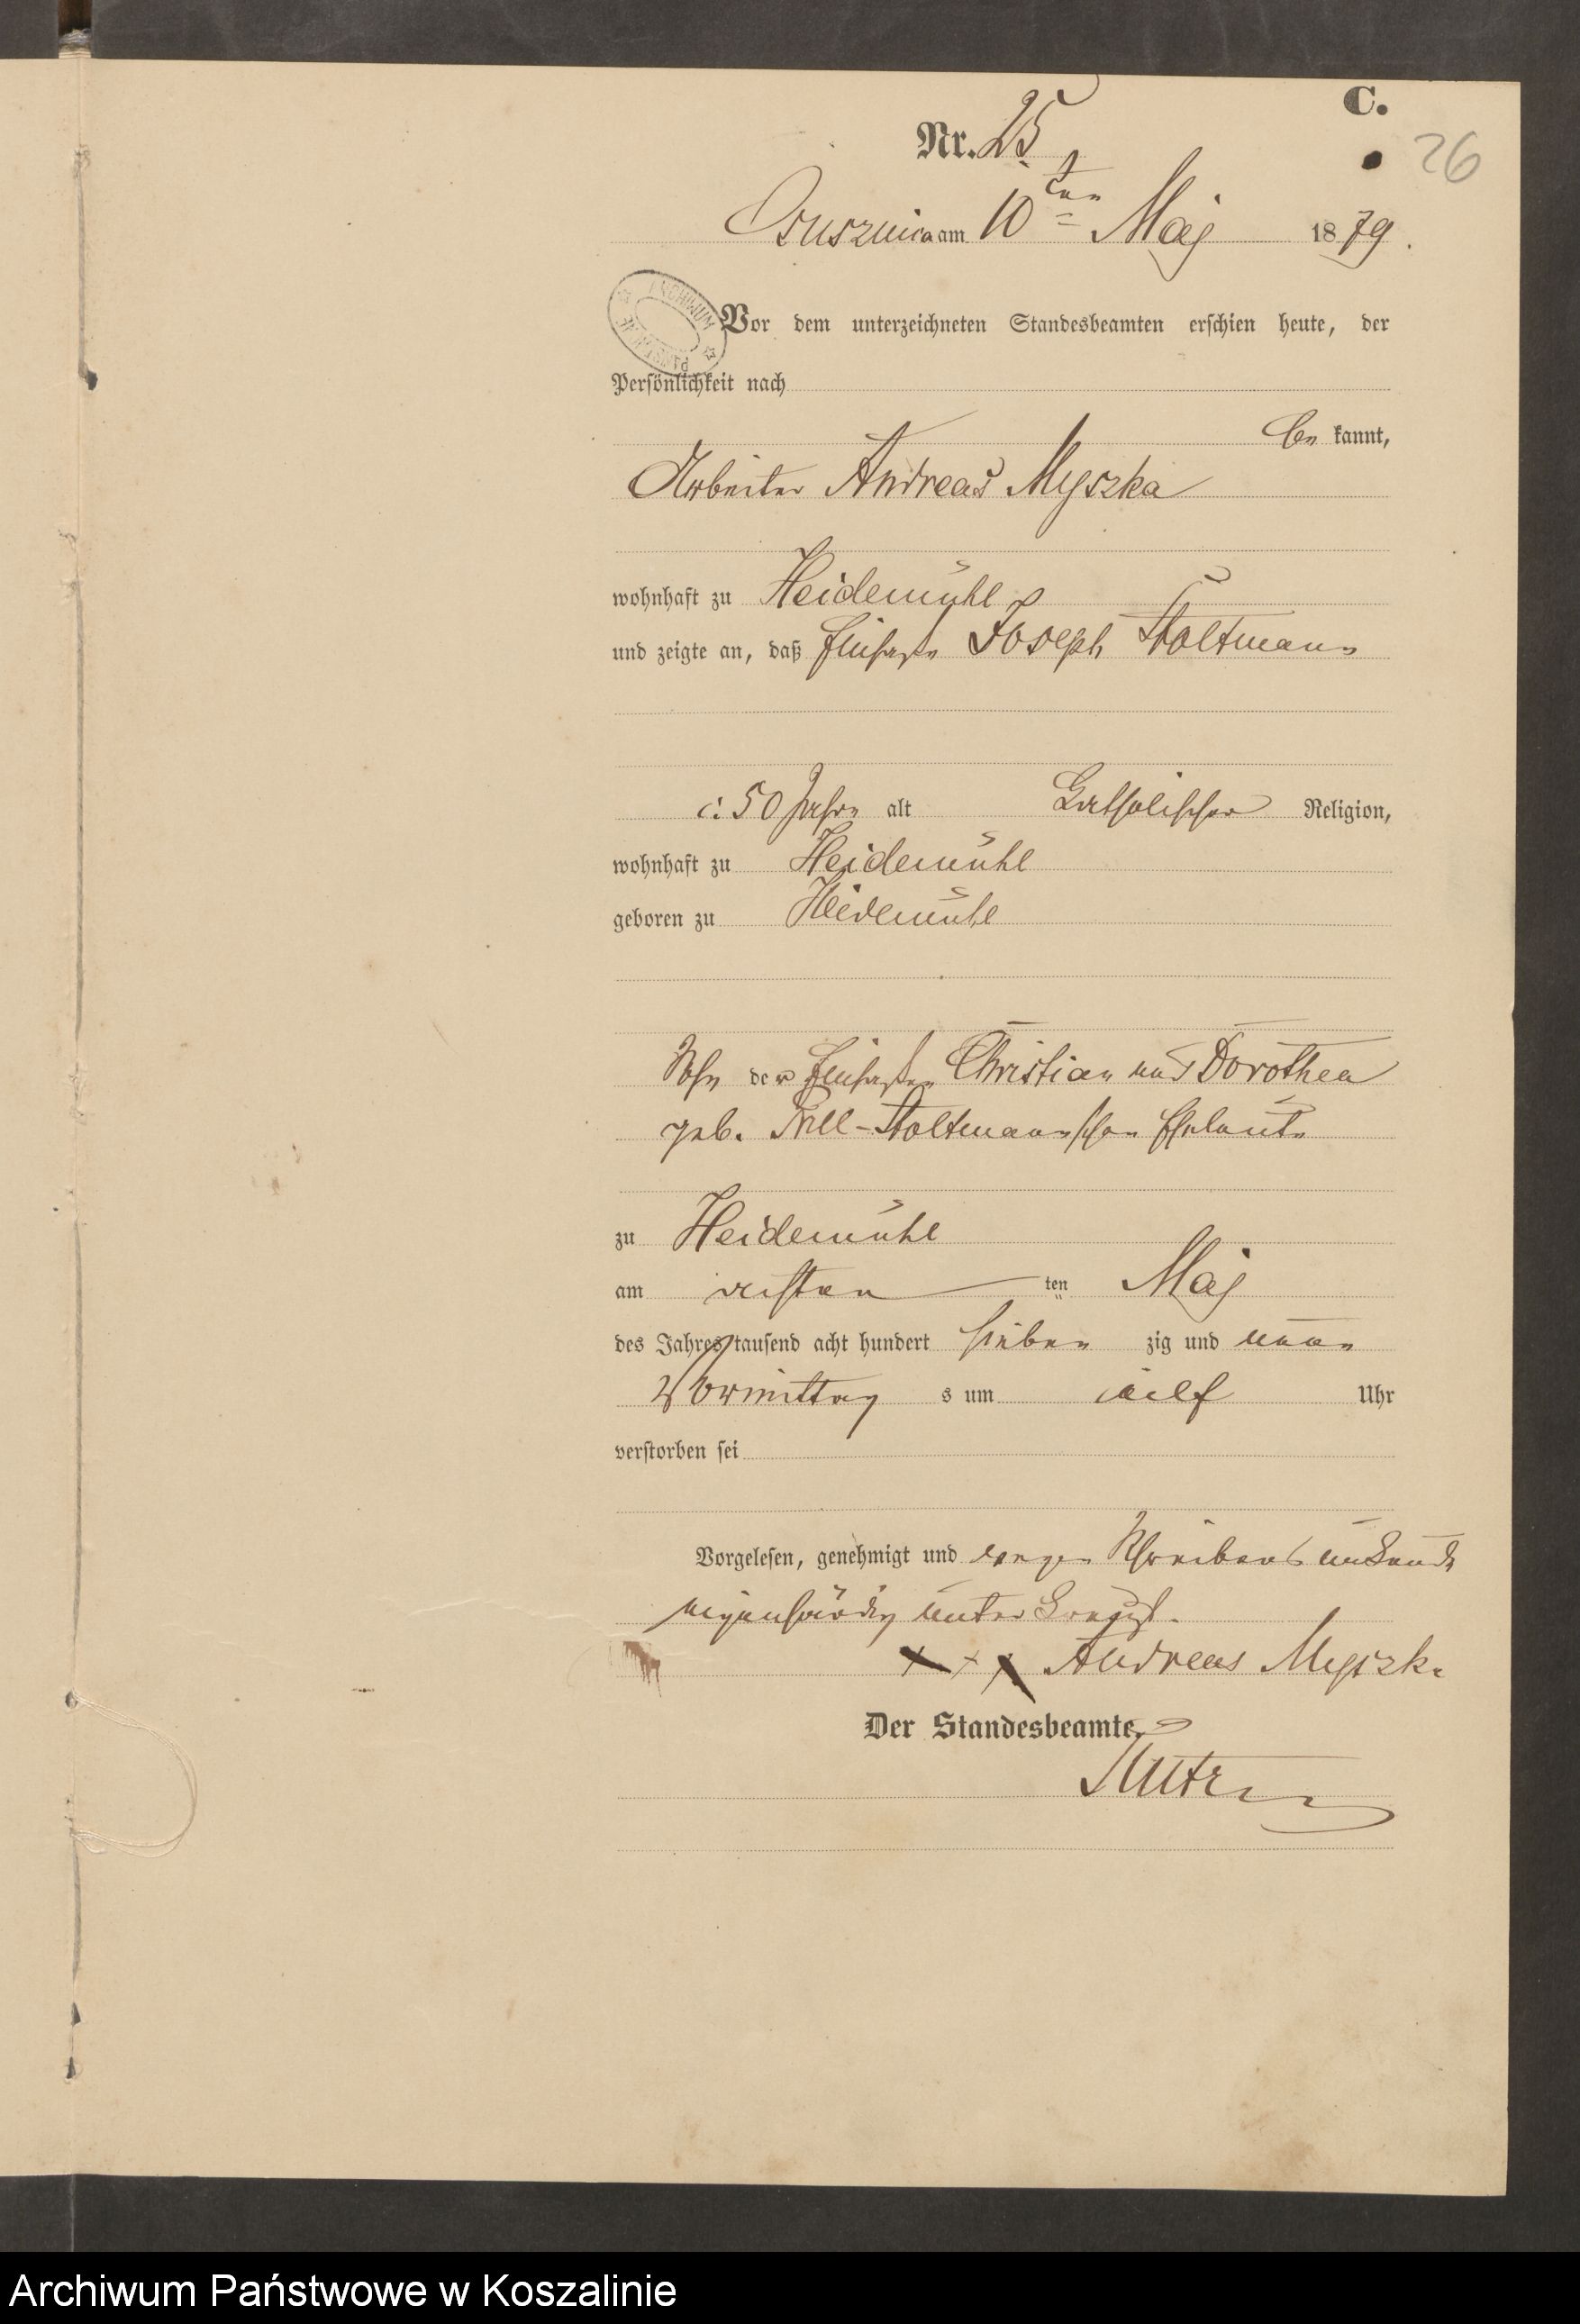 C.
Nr. 25
26
Osusznica am 10ten Maj 1879.
ARCHIWUM PAŃSTWOWE
Vor dem unterzeichneten Standesbeamten erschien heute, der
Persönlichkeit nach
be kannt,
Arbeiter Andreas Myszka
wohnhaft zu Heidemühl
und zeigte an, daß Einsaße Joseph Stoltmann
c. 50 Jahre alt Katholischer Religion,
wohnhaft zu Heidemühl
geboren zu Heidemühl
Sohn der Einsaßen Christian und Dorothea
geb. Stoltmannschen Eheleute
zu Heidemühl
am ersten ten Maj
des Jahres tausend acht hundert sieben zig und neun
Vormittag s um eilf Uhr
verstorben sei
Vorgelesen, genehmigt und wegen Schreibensunkunde
eigenhändig unterkreuzt.
+ + + Andreas Myszka
Der Standesbeamte.
Archiwum Państwowe w Koszalinie